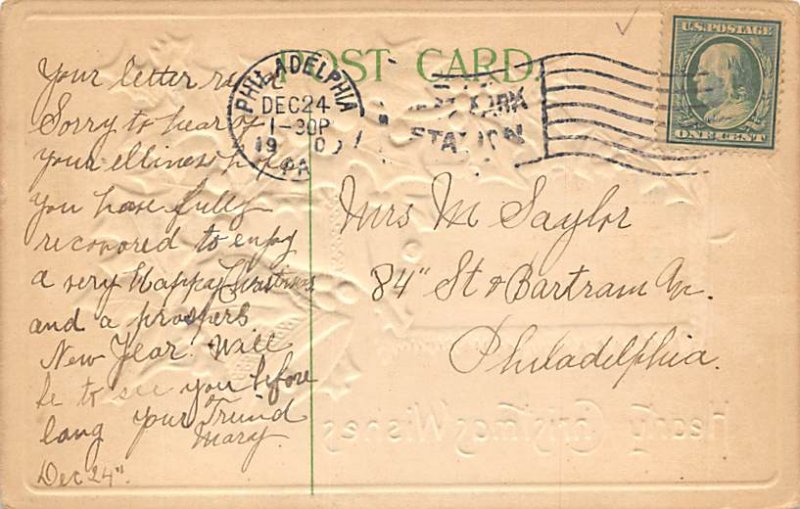 POST CARD
U.S. POSTAGE
ONE CENT
PHILADELPHIA
DEC 24
1-30P
19 0
PA
STATION
Your letter rec'd
Sorry to hear of
your illiness hope
you have fully
recovored to enjoy
a very Happy Christmas
and a prosperb
New Year. Will
be to see you before
long your Friend
Mary.
Dec 24"
Mrs M Saylor
84" St & Bartram Av.
Philadelphia.
Hearty Christmas Wishes